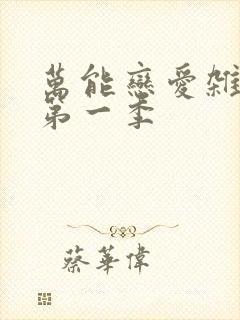 萬能戀愛雜
第一季
蔡華偉